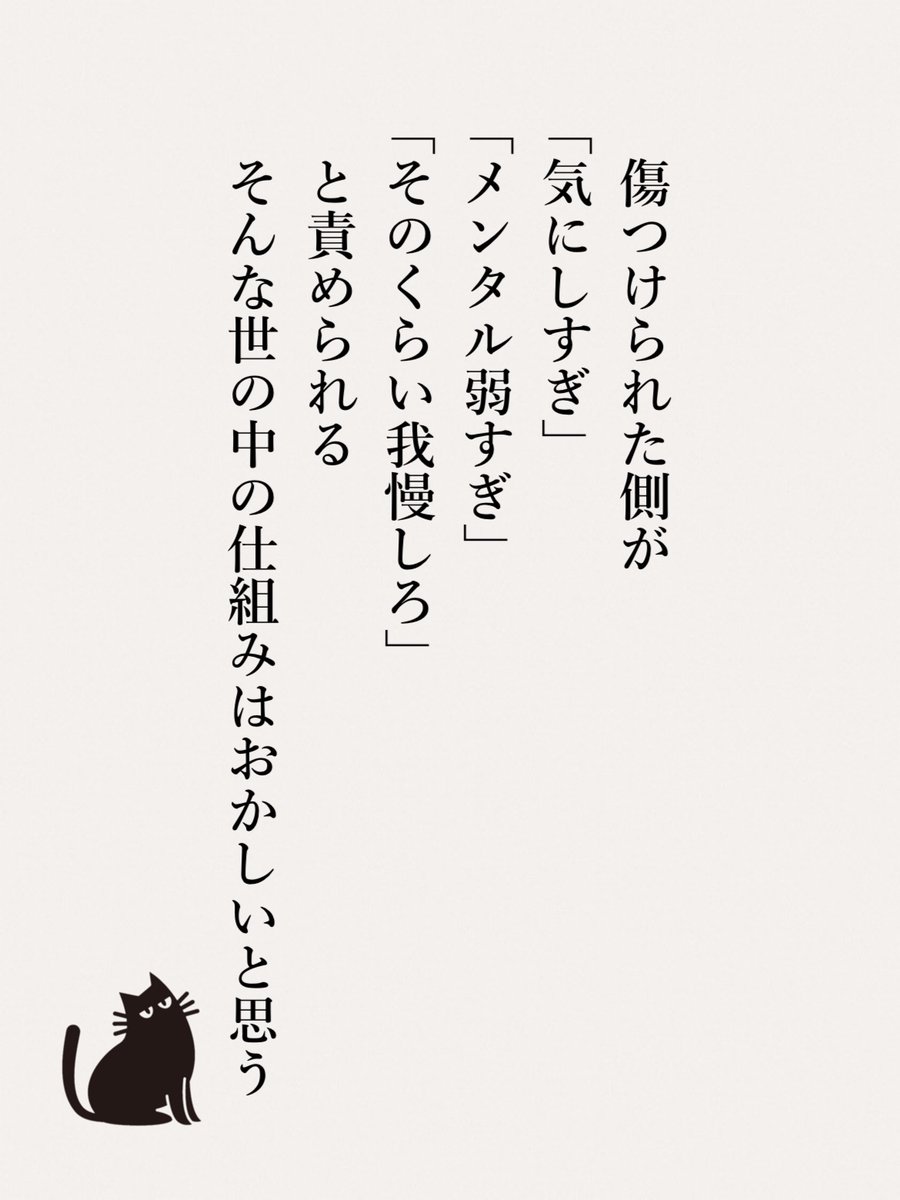 傷つけられた側が
「気にしすぎ」
「メンタル弱すぎ」
「そのくらい我慢しろ」
と責められる
そんな世の中の仕組みはおかしいと思う